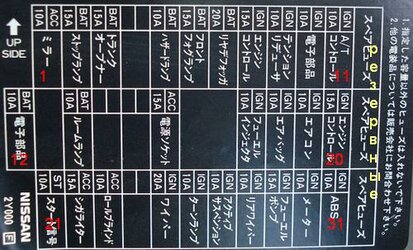 1. 指定した容量以外のヒューズは入れないで下さい。
2. 他の電装品については販売会社にお問合わせ下さい。
スペアヒューズ
スペアヒューズ
スペアヒューズ
резервные
UP
SIDE
IGN
10A
A/T
コントロール
1
IGN
10A
電子部品
IGN
10A
テンション
リデューサ
IGN
10A
エンジン
コントロール
BAT
20A
リヤデフォッガ
BAT
15A
フロント
フォグランプ
BAT
10A
ハザードランプ
BAT
15A
トランク
オープナー
BAT
15A
ストップランプ
ACC
10A
ミラー
1
IGN
15A
エンジン
コントロール
20
IGN
10A
エアコン
IGN
10A
エアバッグ
IGN
10A
フューエル
インジェクタ
ACC
15A
電源ソケット
BAT
15A
ルームランプ
BAT
10A
電子部品
12
IGN
10A
ABS
21
IGN
10A
メーター
IGN
15A
フューエル
ポンプ
IGN
10A
リヤワイパー
IGN
10A
アクティブ
サスペンション
IGN
10A
ターンランプ
IGN
20A
ワイパー
ACC
ロールブラインド
ACC
15A
シガライター
ST
10A
スタート信号
NISSAN
2Y000
F